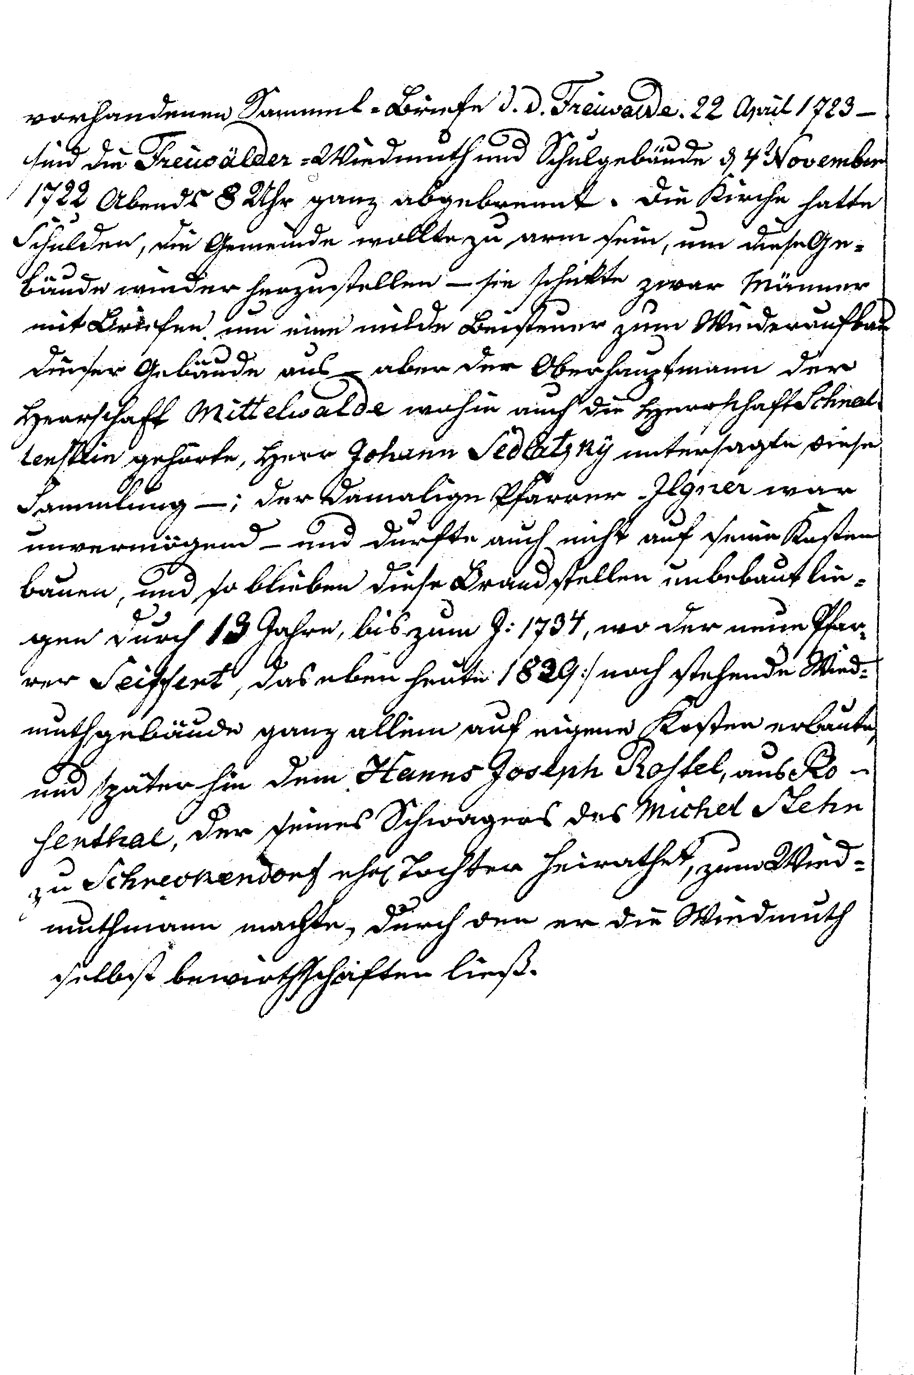 vorhandenen Sammel-Briefe d. d. Freiwalde. 22 April 1723 –
sind die Freiwälder-Wiedmuth und Schulgebäude d 4t November
1722 Abends 8 Uhr ganz abgebrennt. Die Kirche hatte
Schulden, die Gemeinde wollte zu arm sein, um diese Ge-
bäude wieder herzustellen – sie schikte zwar Männer
mit Briefen um eine milde Beisteuer zum Wiederaufbau
dieser Gebäude aus – aber der Oberhauptmann der
Herrschaft Mittelwalde wohin auch die Herrschaft Schnal-
lenstein gehörte, Herr Johann Sedlatzny untersagte diese
Sammlung –; der damalige Pfarrer Ilgner war
unvermögend – und durfte auch nicht auf seine Kosten
bauen, und so blieben diese Brandstellen unbebaut lie-
gen durch 13 Jahre, bis zum J: 1734, wo der neue Pfar-
rer Seiffert, das eben heute 1839 :/ noch stehende Wied-
muthgebäude ganz allein auf eigene Kosten erbaute,
und später hin dem Hanns Joseph Rostel, aus Ro-
senthal, der seines Schwagers des Michel
zu Schreckendorf Tochter heirathet, zum Wied-
muthmann machte, durch den er die Wiedmuth
selbst bewirthschaften ließ.